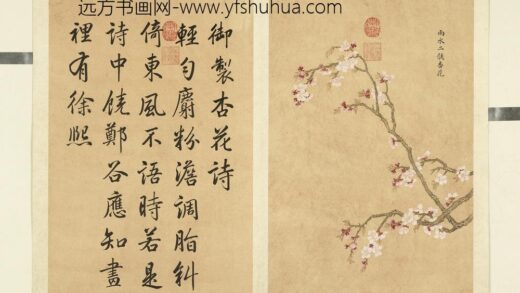 远方书画网-www.yfshuhua.com
雨水二候杏花
御製杏花詩
輕勻麝粉澹調脂斜
倚東風不語時若是
詩中饒鄭谷應知畫
裡有徐熙